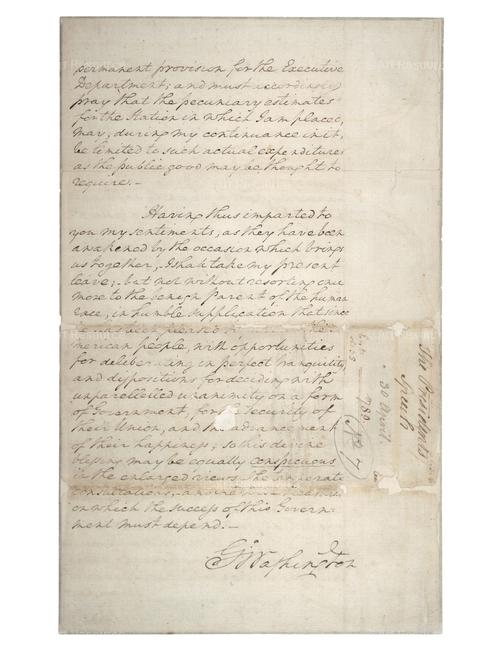 permanent provision for the Executive
Department; and must accordingly
pray that the pecuniary estimates
for the Station in which I am placed,
may, during my continuance in it,
be limited to such actual expenditures
as the public good may be thought to
require.—
Having thus imparted to
you my sentiments, as they have been
awakened by the occasion which brings
us together, I shall take my present
leave; but not without resorting once
more to the benign Parent of the human
race, in humble supplication that since
he has been pleased to
merican people, with opportunities
for deliberating in perfect tranquility,
and dispositions for deciding with
unparellelled unanimity on a form
of Government, for the security of
their Union, and the advancement
of their happiness; so this divine
blessing may be equally conspicuous
in the enlarged views, the temperate
consultations, and
on which the success of this Govern-
ment must depend.—
Go Washington
The Presidents
Speech
30 April
1789